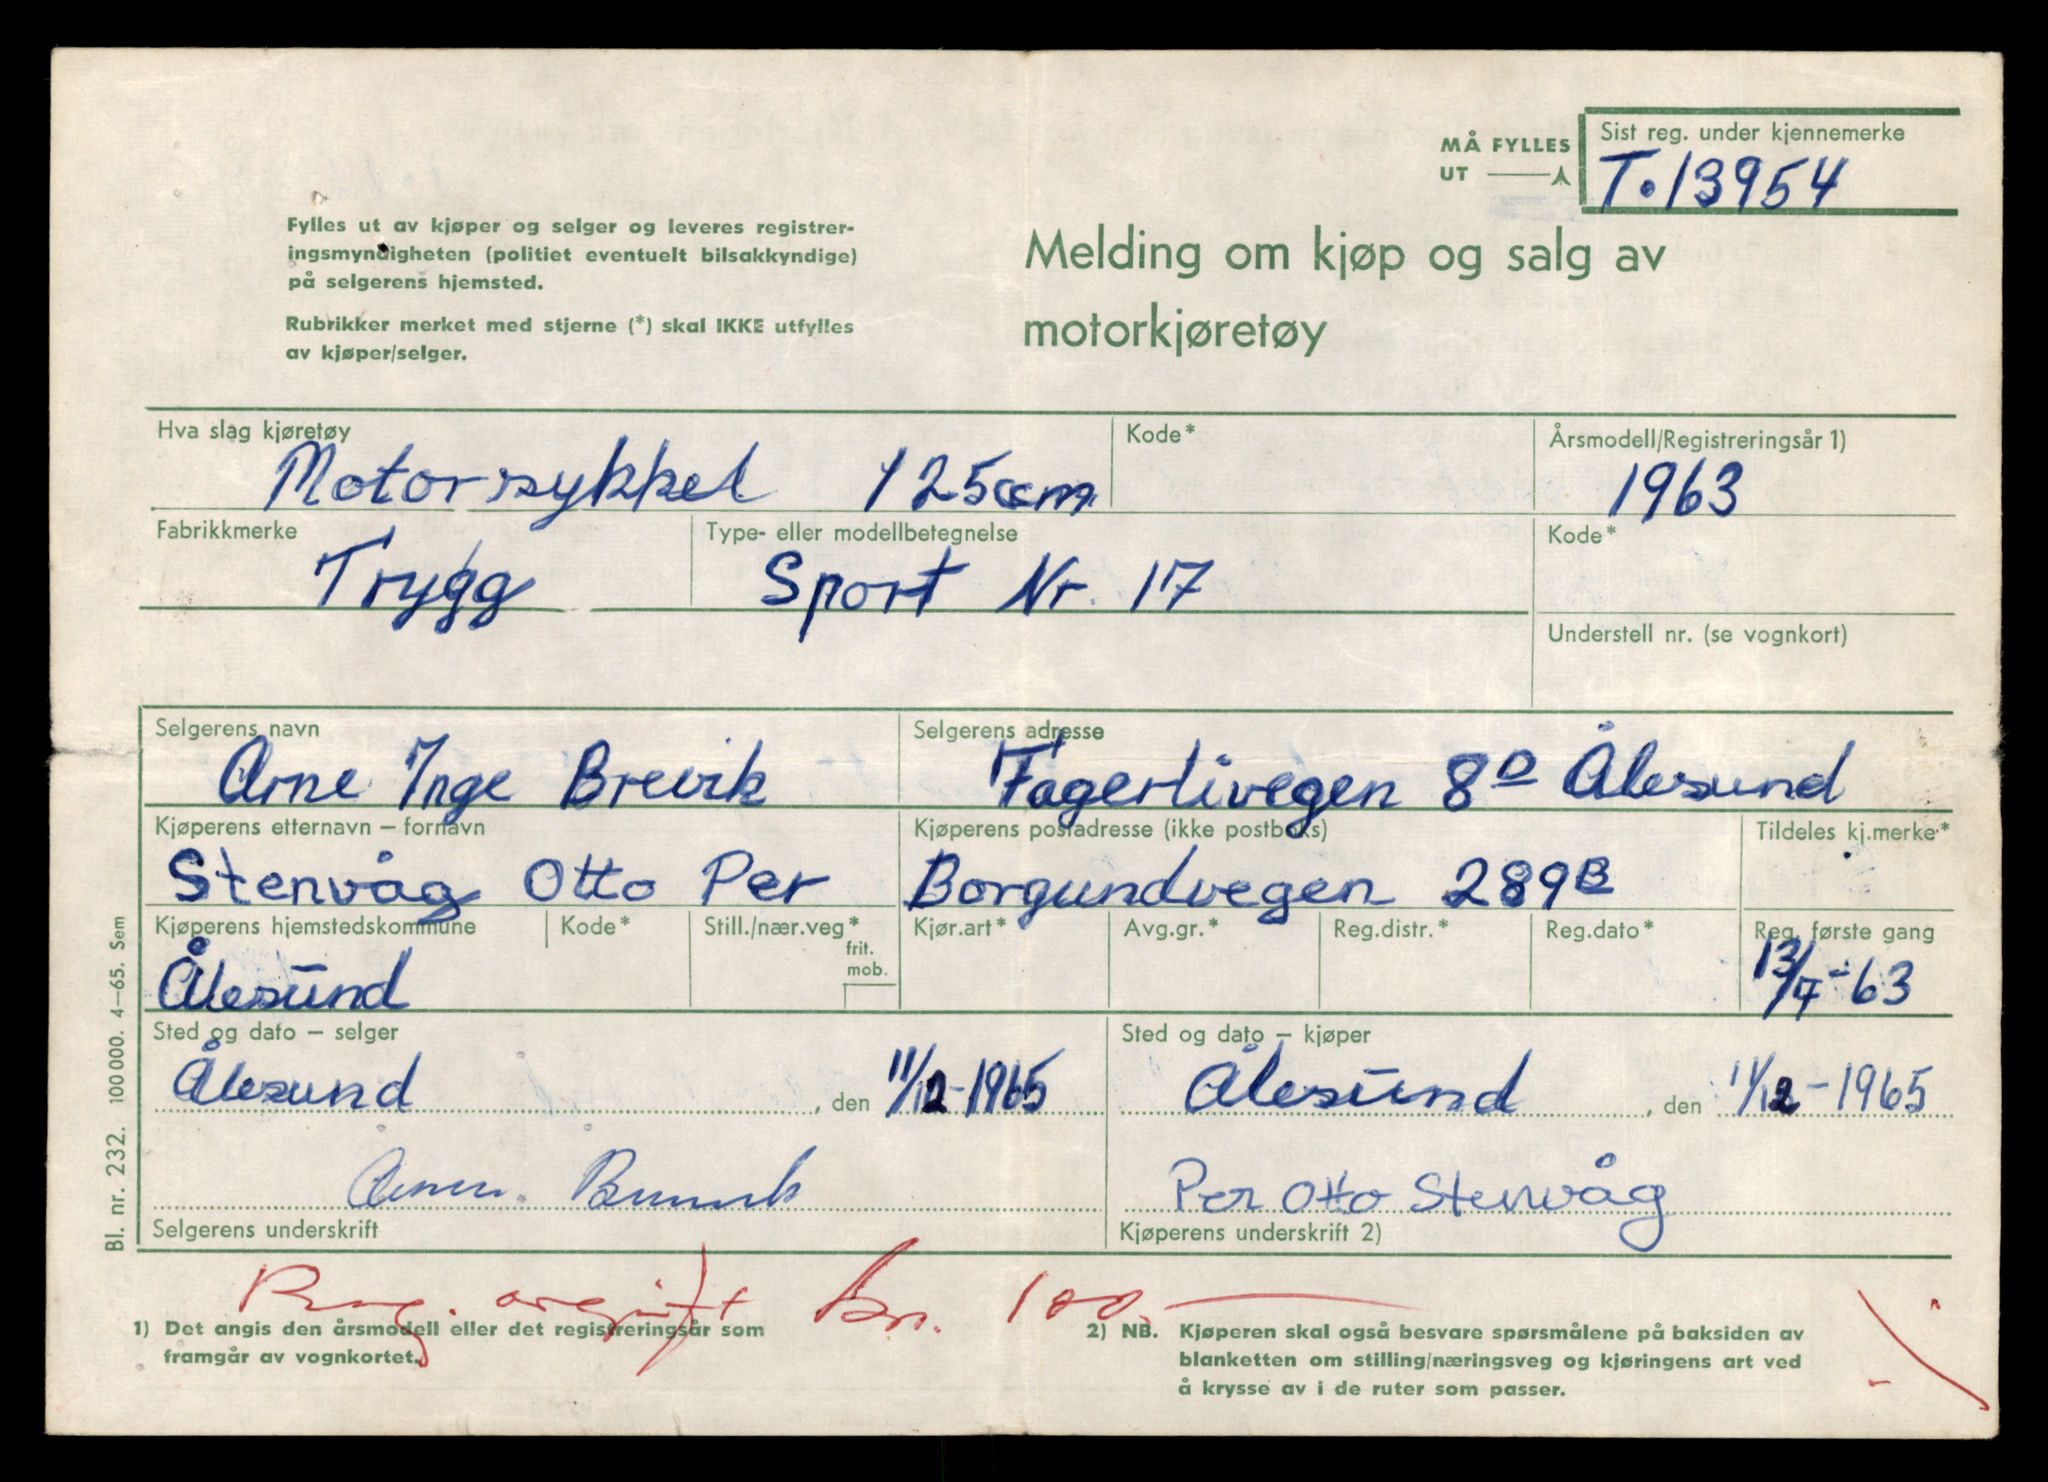 MÅ FYLLES
UT
Sist reg. under kjennemerke
T.13954
Fylles ut av kjøper og selger og leveres registrer-
ingsmyndigheten (politiet eventuelt bilsakkyndige)
på selgerens hjemsted.
Rubrikker merket med stjerne (*) skal IKKE utfylles
av kjøper/selger.
Melding om kjøp og salg av
motorkjøretøy
Hva slag kjøretøy
Kode*
Årsmodell/Registreringsår 1)
Motorsykkel 125ccm
1963
Fabrikkmerke
Type- eller modellbetegnelse
Kode*
Trygg
Sport Nr. 17
Understell nr. (se vognkort)
Selgerens navn
Selgerens adresse
Arne Inge Brevik
Fagerlivegen 8D Ålesund
Kjøperens etternavn – fornavn
Kjøperens postadresse (ikke postboks)
Tildeles kj.merke*
Stenvåg Otto Per
Borgundvegen 289B
Kjøperens hjemstedskommune
Kode*
Still./nær.veg*
frit.
mob.
Kjør.art*
Avg.gr.*
Reg.distr.*
Reg.dato*
Reg. første gang
Ålesund
13/7-63
Sted og dato – selger
Sted og dato – kjøper
Ålesund , den 11/12-1965
Ålesund , den 11/12-1965
Per Otto Stenvåg
Selgerens underskrift
Kjøperens underskrift 2)
Reg. avgift kr. 100,-
1) Det angis den årsmodell eller det registreringsår som
framgår av vognkortet.
2) NB. Kjøperen skal også besvare spørsmålene på baksiden av
blanketten om stilling/næringsveg og kjøringens art ved
å krysse av i de ruter som passer.
Bl. nr. 232. 100 000. 4–65. Sem